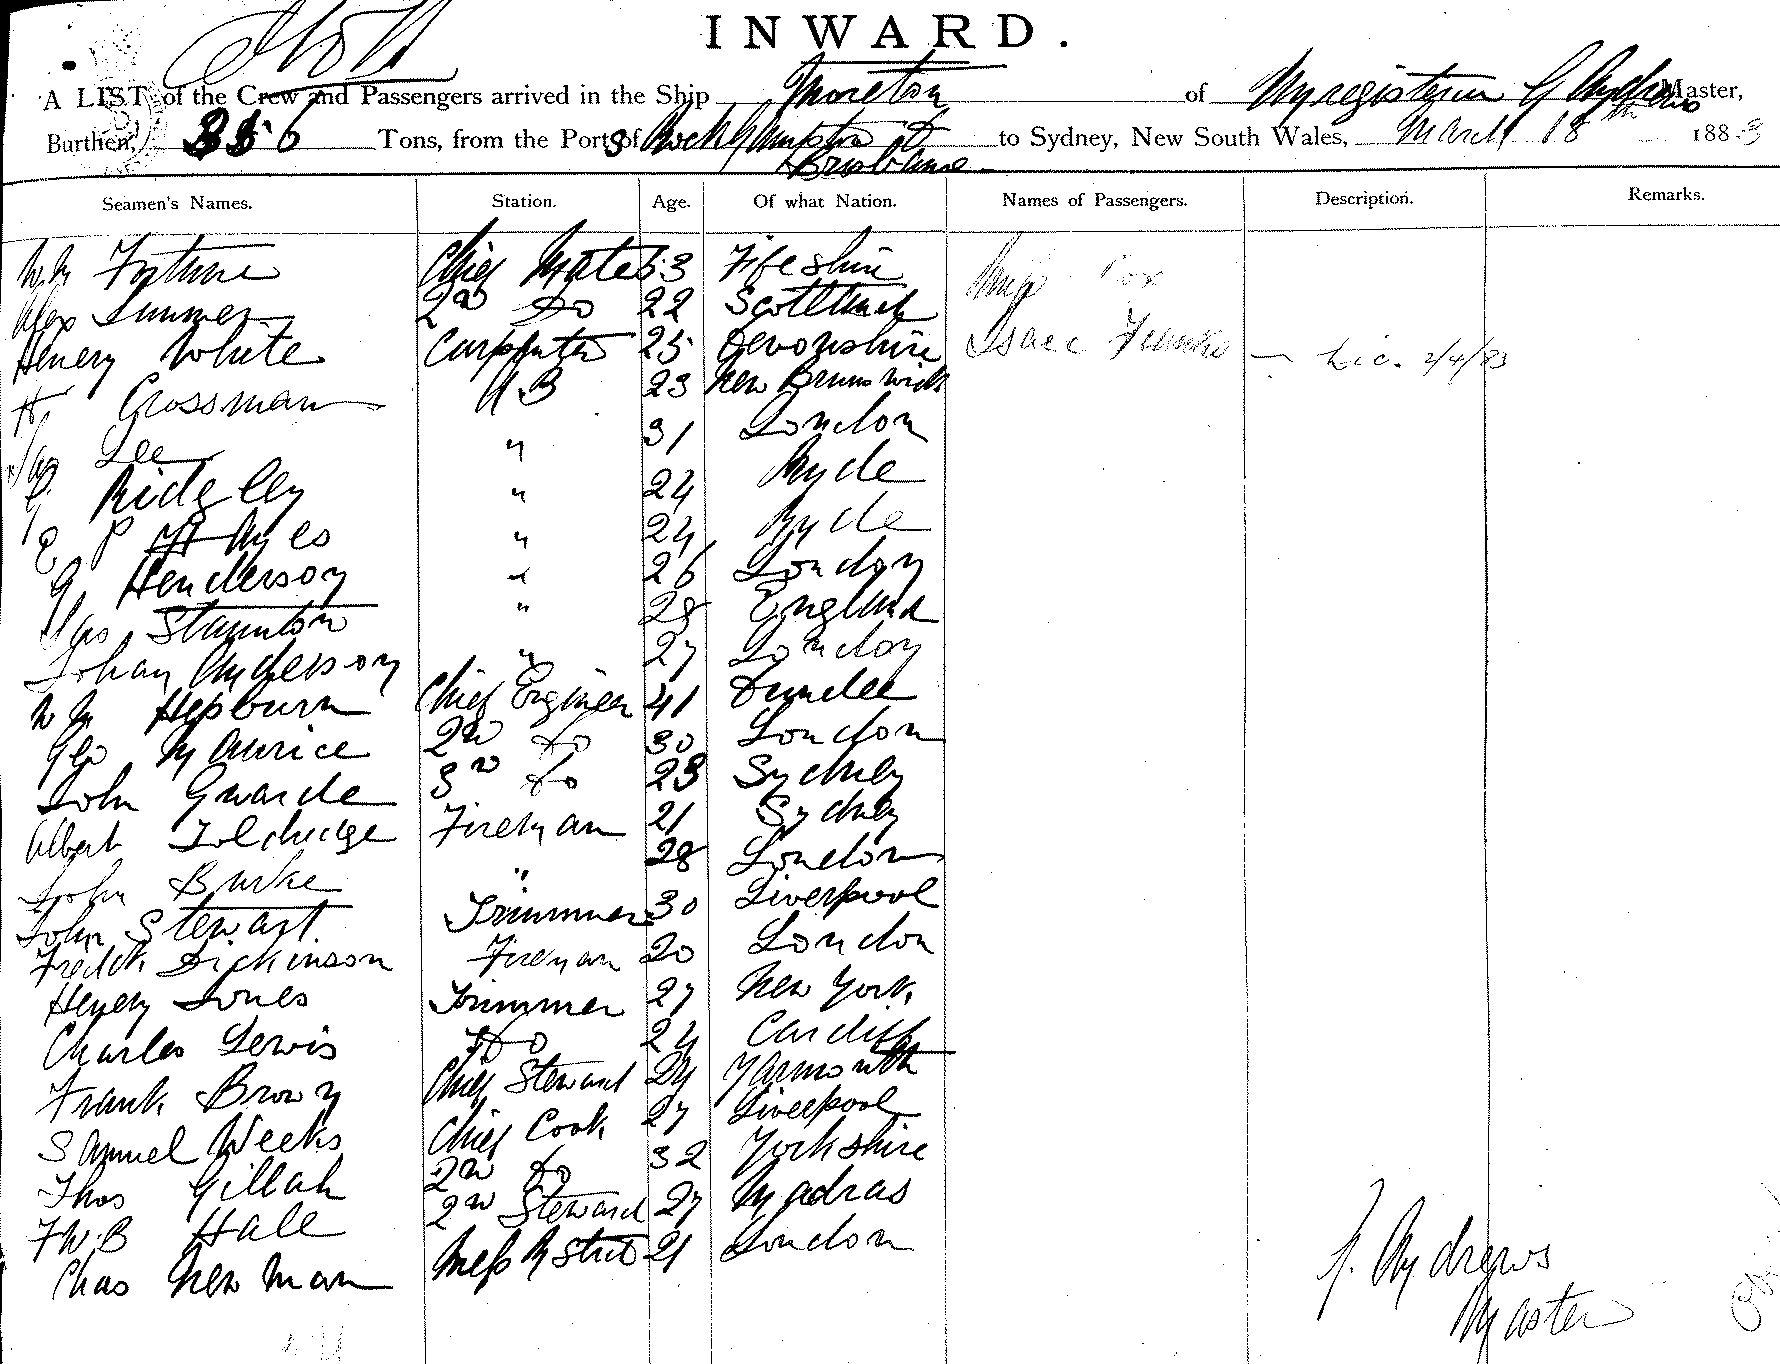 INWARD.
A LIST of the Crew and Passengers arrived in the Ship Moreton of G Andrews Master,
Burthen, Tons, from the Port of Rockhampton & Brisbane to Sydney, New South Wales, March 18th 1883
Seamen's Names. Station. Age. Of what Nation. Names of Passengers. Description. Remarks.
Wm Fortune Chief Mate 53 Fifeshire
Alex Summer 2nd Do 22 Scotland
Henery White Carpenter 25 Devonshire Isaac - Lic. 2/4/83
H Crossman A.B 23 New Brunswick
Jas Lee " 31 London
G Ridgley " 24 Ryde
E P " 24 Ryde
G Henderson " 26 London
Jas Staunton " 28 England
Johan Anderson " 27 London
Wm Hepburn Chief Engineer 41 Dundee
Geo Maurice 2nd Do 30 London
John 3rd Do 23 Sydney
Albert Toldridge Fireman 21 Sydney
John Burke " 28 London
John Stewart. Trimmer 30 Liverpool
Fredck Dickinson Fireman 20 London
Henery Jones Trimmer 27 New York
Charles Lewis Do 24 Cardiff
Frank Brown Chief Steward 24 Yarmouth
Samuel Weeks Chief Cook 27 Liverpool
Thos Gillah 2nd Do 32 Yorkshire
F W. B Hale 2nd Steward 27 Madras
Chas Newman Mess R Std 21 London
Andrews
Master